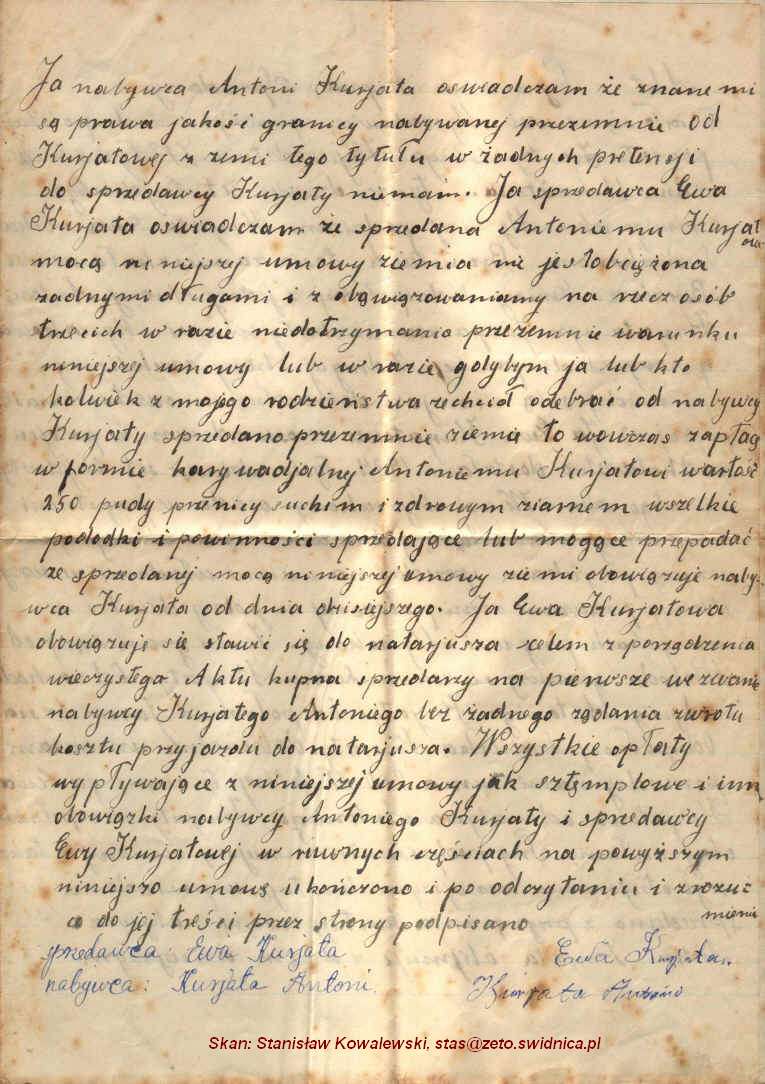 Ja nabywca Antoni Kurjata oswiadczam że znane mi
są prawa jakość i granicy nabywanej przezemnie od
Kurjatowej z zemi tego tytułu w żadnych pretensji
do sprzedawcy Kurjaty niemam. Ja sprzedawca Ewa
Kurjata oswiadczam że sprzedana Antoniemu Kurjat
mocą niniejszej umowy ziemia nie jest obciężona
żadnymi długami i z obąwięzowaniamy na rzecz osób
trzecich w razie niedotrzymania przezemnie warunku
niniejszej umowy lub w razie gdybym ja lub kto
kolwiek z mojego rodzieństwa zechciał odebrać od nabywcy
Kurjaty sprzedano przezemnie ziemie to wowczas zapłacą
w formie kary wadjalnej Antoniemu Kurjatowi wartość
250 pudy przenicy suchim i zdrowym ziarnem wszelkie
pododki i powinności sprzedające lub mogące przepadać
ze sprzedanej mocą niniejszej umowy ziemi obowięzuje naby-
wca Kurjata od dnia dzisiejszego. Ja Ewa Kurjatowa
obowięzuje się stawić się do natarjusza celem zporzędzenia
wieczystego Aktu kupna sprzedarzy na pierwsze wezwanie
nabywcy Kurjatego Antoniego bez żadnego rządania zwrotu
kosztu przyjazdu do natarjusza. Wszystkie opłaty
wypływające z niniejszej umowy jak sztęmplowe i inn
obowięzki nabywcy Antoniego Kurjaty i sprzedawcy
Ewy Kurjatowej w riuwnych częściach na powyższym
niniejszo umowę ukończono i po odczytaniu i zrozu
mieniu
co do jej treści przez strony podpisano
sprzedawca: Ewa Kurjata Ewa Kurjata.
nabywca: Kurjata Antoni. Kurjata Antoni
Skan: Stanisław Kowalewski, stas@zeto.swidnica.pl